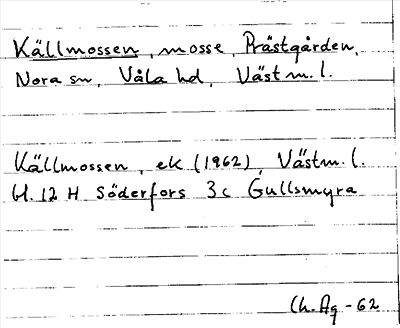 Källmossen, mosse, Prästgården,
Nora sn, Våla hd, Västm. l.
Källmossen, ek (1962), Västm. l.
bl. 12 H Söderfors 3c Gullsmyra
Ch. Ag -62